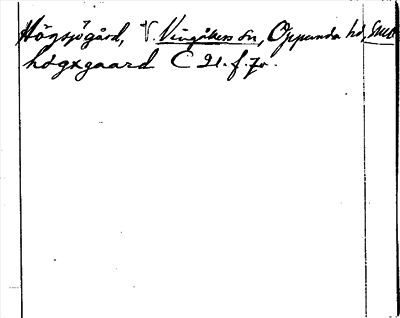 Högsjögård, V. Vingåkers sn, Oppunda hd, Smdl
högxgaard C 21. f. 70.